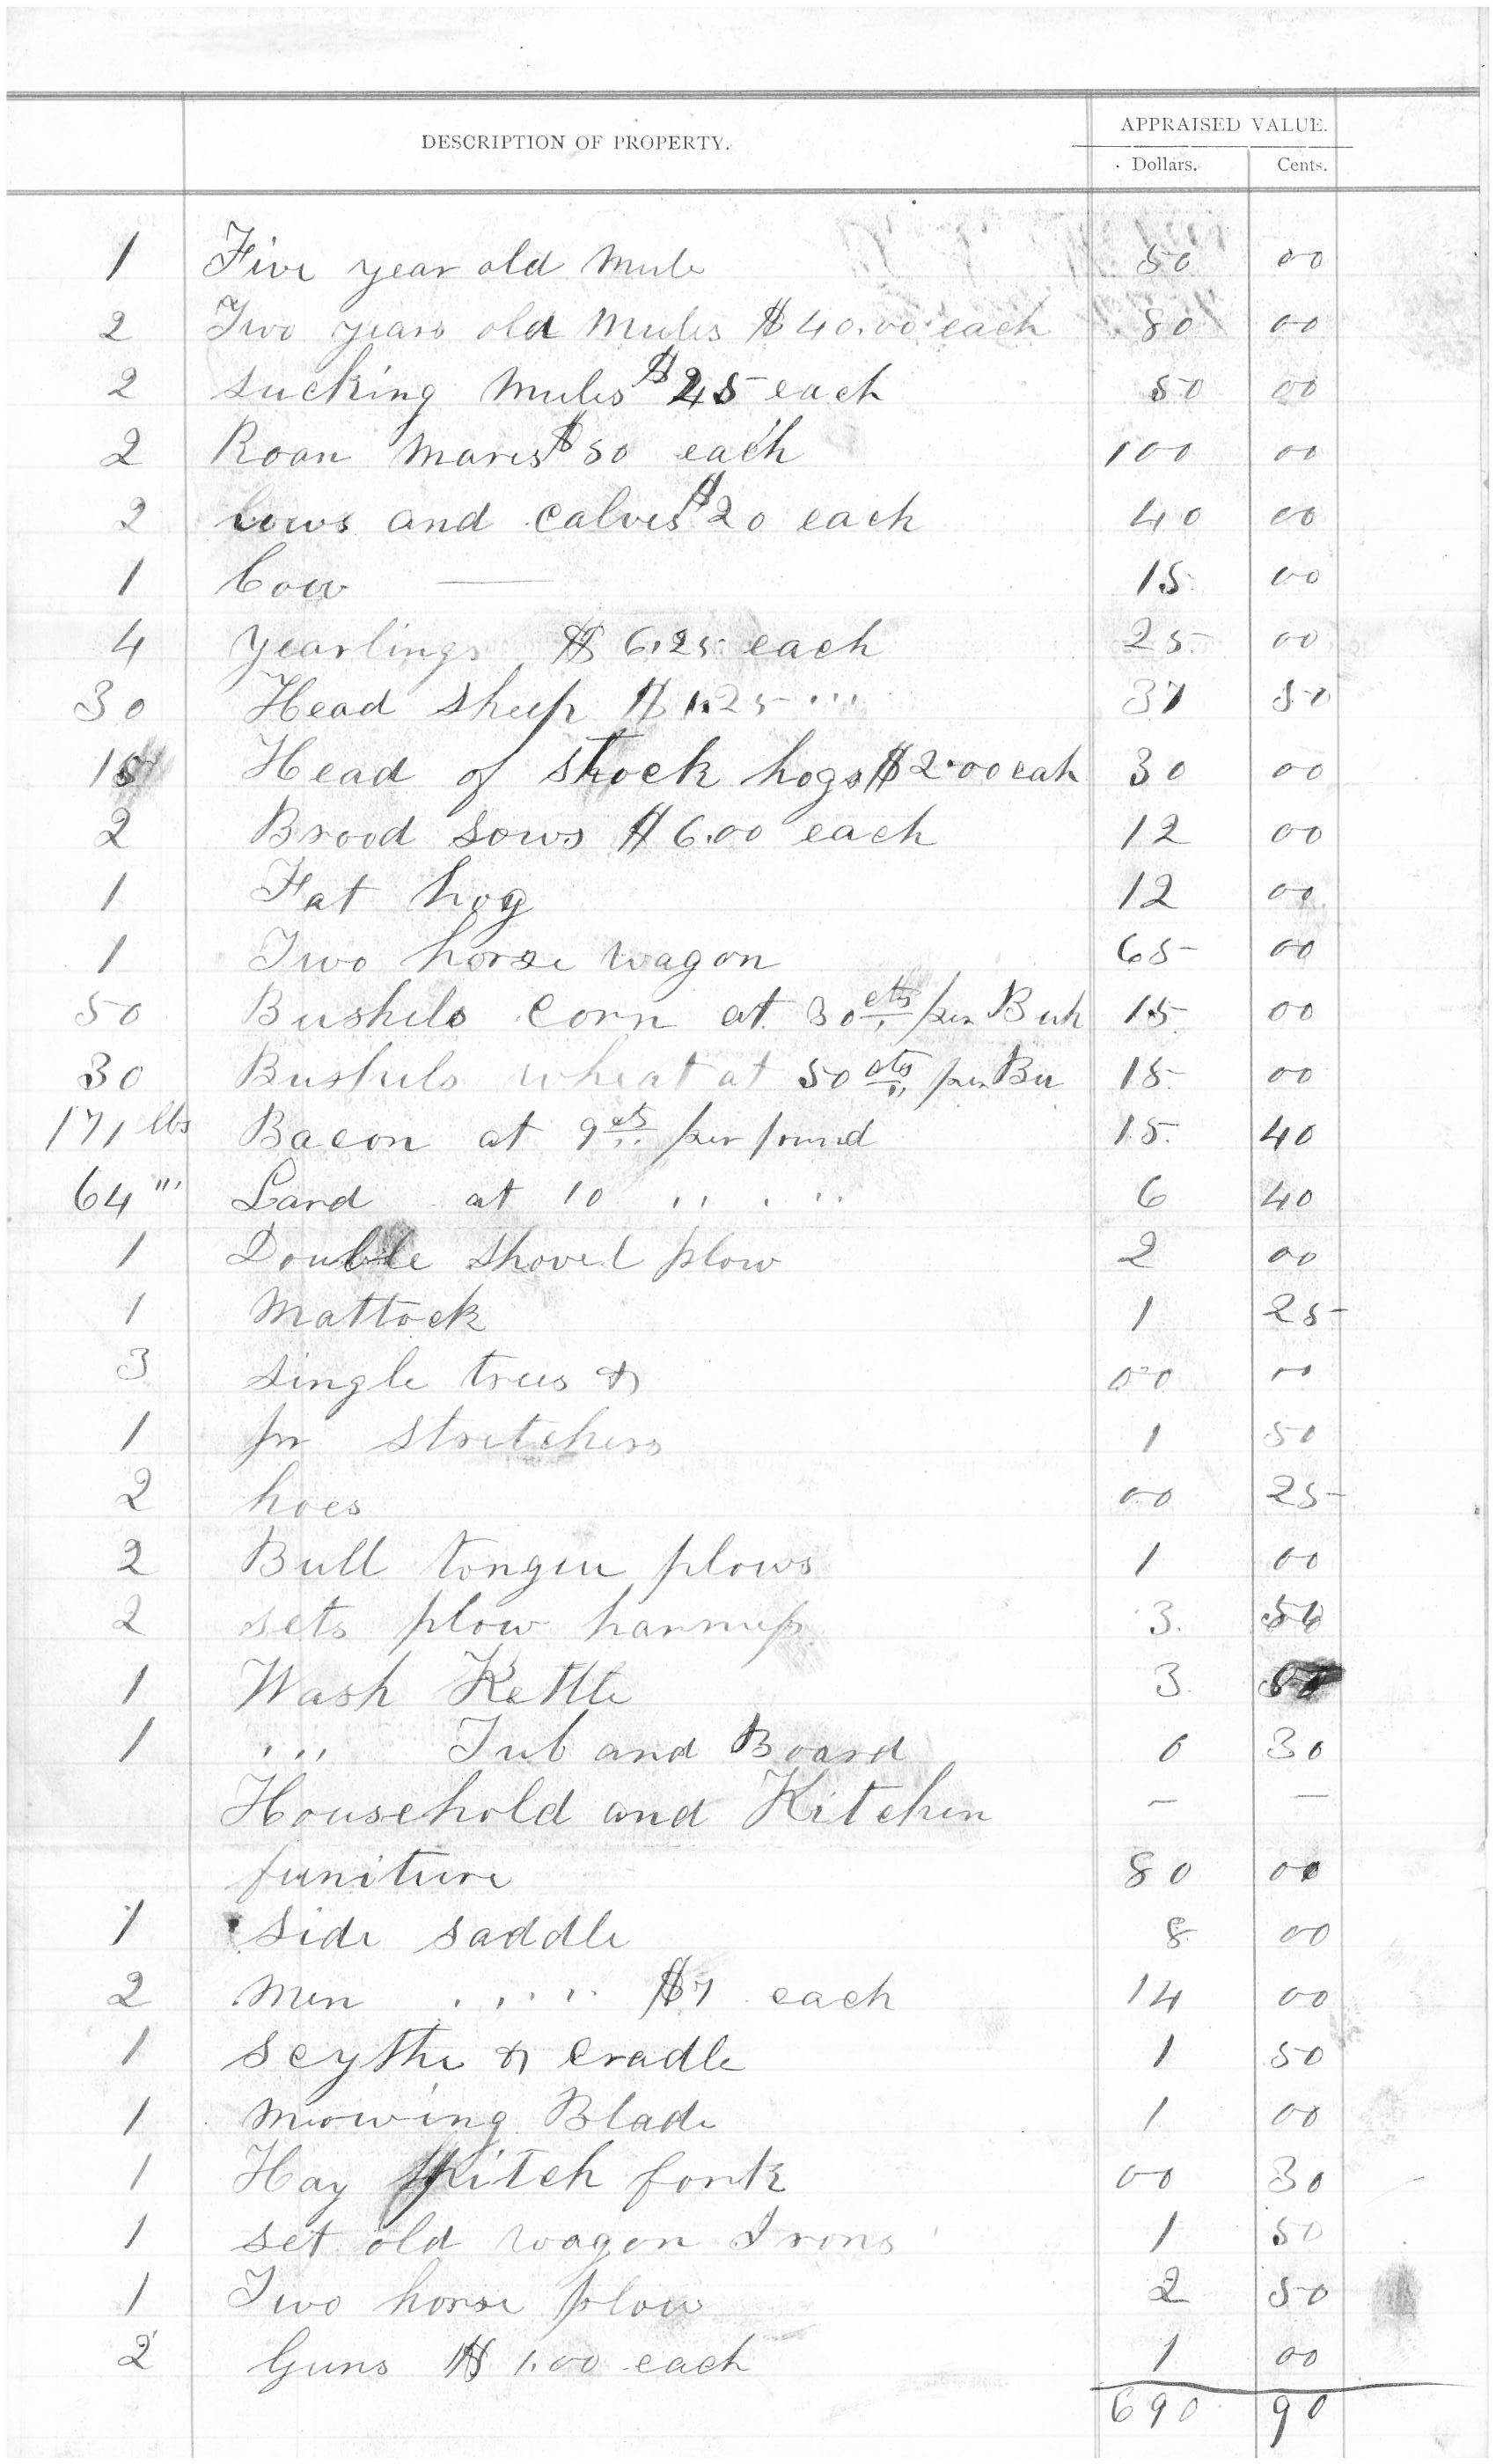 DESCRIPTION OF PROPERTY. APPRAISED VALUE.
Dollars. Cents.
1 Five year old Mule 50 00
2 Two years old Mules $40.00 each 80 00
2 sucking Mules $25 each 50 00
2 Roan Mares $50 each 100 00
2 Cows and calves $20 each 40 00
1 Cow — 15 00
4 yearlings $6.25 each 25 00
30 Head sheep $1.25 " 37 50
15 Head of stock hogs $2.00 eah 30 00
2 Brood sows $6.00 each 12 00
1 Fat hog 12 00
1 Two horse wagon 65 00
50 Bushels Corn at 30 cts per Buh 15 00
30 Bushels wheat at 50 cts per Bu 15 00
171 lbs Bacon at 9 cts per pound 15 40
64 " Lard at 10 " " 6 40
1 Double shovel plow 2 00
1 Mattock 1 25
3 single trees & 00 00
1 pr stretchers 1 50
2 hoes 00 25
2 Bull tongue plows 1 00
2 sets plow harness 3 50
1 Wash Kettle 3
1 " Tub and Board 0 30
Household and Kitchen — —
funiture 80 00
1 side saddle 8 00
2 Men " " $7 each 14 00
1 scythe & cradle 1 50
1 Mowing Blade 1 00
1 Hay pitch fork 00 30
1 set old wagon Irons 1 50
1 Two horse plow 2 50
2 Guns $1.00 each 1 00
690 90